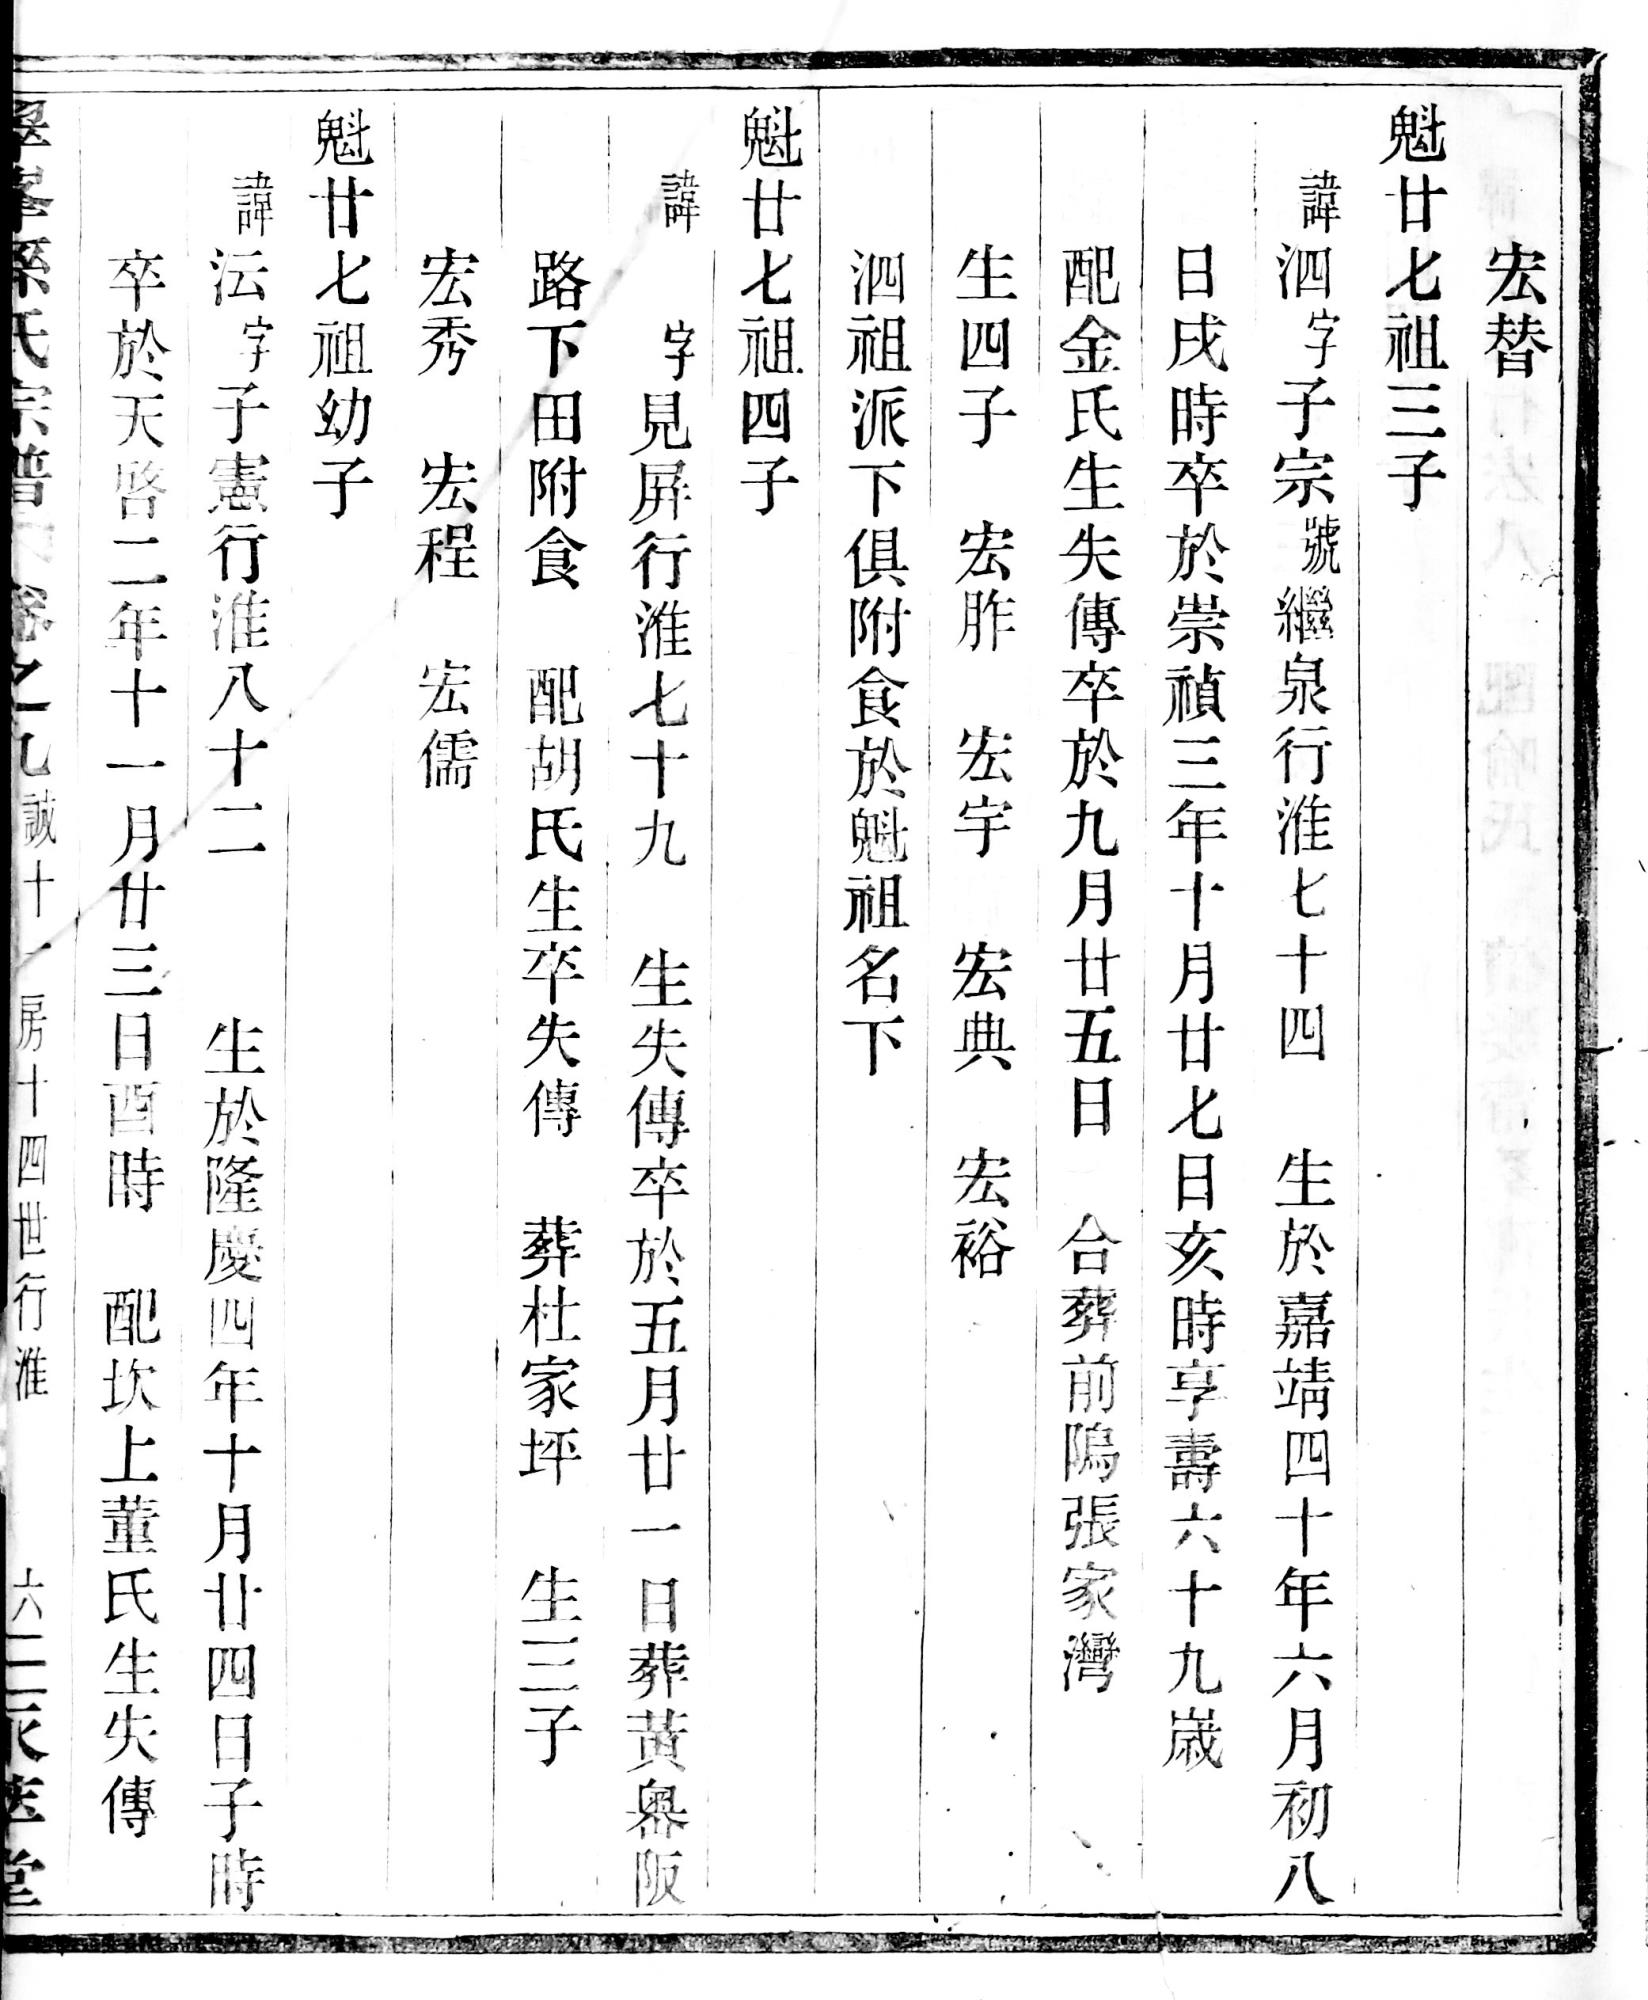 宏替
魁廿七祖三子
諱泗字子宗號繼泉行淮七十四　生於嘉靖四十年六月初八
日戌時卒於崇禎三年十月廿七日亥時享壽六十九歲
配金氏生失傳卒於九月廿五日　合葬前隖張家灣
生四子　宏胙　宏宇　宏典　宏裕
泗祖派下俱附食於魁祖名下
魁廿七祖四子
諱　字見屏行淮七十九　生失傳卒於五月廿一日葬黃畧阪
路下田附食　配胡氏生卒失傳　葬杜家坪　生三子
宏秀　宏程　宏儒
魁廿七祖幼子
諱沄字子憲行淮八十二　生於隆慶四年十月廿四日子時
卒於天啓二年十一月廿三日酉時　配坎上董氏生失傳
孫氏宗譜　卷之九　誠十一房十四世行淮　六二　堂